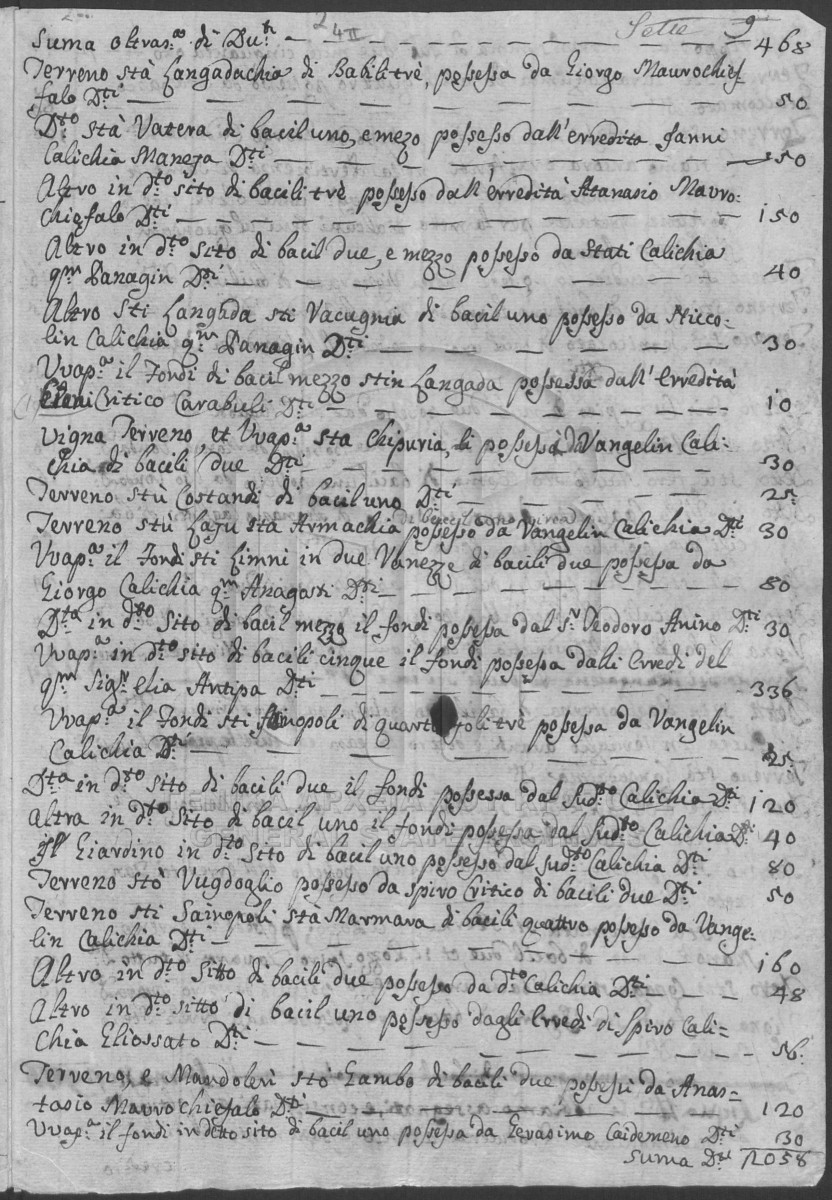 Sette 9
Suma oltras:ª di Du:ti — — — — — 468
Terreno stà Langadachia di Babili trè, possessa da Giorgo Maurochief
falo D:ti — — — — — 50
D:to stà Vatera di bacil uno, e mezo possesso dall'erredità Janni
Calichia Maneza D:ti — — — — — 50
Altro in d:to sito di bacili trè possesso dall'erredità Atanasio Mauro:
chiefalo D:ti — — — — — 150
Altro in d:to sito di bacil due, e mezzo possesso da Stati Calichia
q:m Panagin D:ti — — — — — 40
Altro sti Langada sti Vacugnia di bacil uno possesso da Nicco:
lin Calichia q:m Panagin D:ti — — — — — 30
Uvap:ª il Fondi di bacil mezzo stin Langada possessa dall'erredità
Critico Carabuli D:ti — — — — — 10
Vigna Terreno, et Uvap:ª sta Chipuria, li possessa da Vangelin Cali:
chia di bacili due D:ti — — — — — 30
Terreno stù Costandi di bacil uno D:ti — — — — — 25
di bacil uno circa
Terreno stù Lazu sta Armachia possesso da Vangelin Calichia D:ti 30
Uvap:ª il Fondi sti Limni in due Vanezze di bacili due possessa da
Giorgo Calichia q:m Anagosti D:ti — — — — — 80
D:ta in d:to sito di bacil mezzo il fondi possessa dal S:r Teodoro Anino D:ti 30
Uvap:ª in d:to sito di bacili cinque il fondi possessa dalli Erredi del
q:m Sig:r Elia Antipa D:ti — — — — — 336
Uvap:ª il Fondi sti Sainopoli di quarte foli trè possessa da Vangelin
Calichia D:ti — — — — — 25
D:ta in d:to sito di bacili due il fondi possessa dal sud:to Calichia D:ti 120
Altra in d:to sito di bacil uno il fondi possessa dal sud:to Calichia D:ti 40
Il Giardino in d:to sito di bacil uno possesso dal sud:to Calichia D:ti 80
Terreno stò Vugdoglio possesso da Spiro Critico di bacili due D:ti 50
Terreno sti Sainopoli stà Marmara di bacili quattro possesso da Vange:
lin Calichia D:ti — — — — — 160
Altro in d:to sitto di bacili due possesso da d:to Calichia D:ti — — 48
Altro in d:to sitto di bacil uno possesso dagli Erredi di Spiro Cali=
chia Gliossato D:ti — — — — — 56
Terreno, e Mandoleri stò Gambo di bacili due possessi da Anas=
tasio Maurochiefalo D:ti — — — — — 120
Uvap:ª il fondi in detto sito di bacil uno possessa da Gerasimo Caidemeno D:ti 30
Suma D:ti 2058